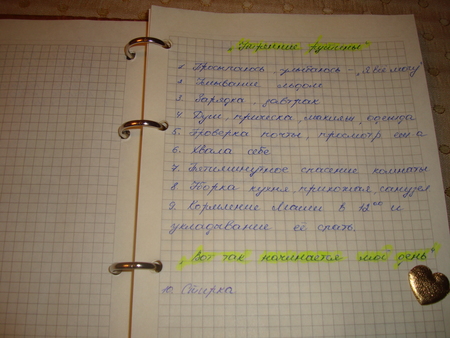 "Утренние рутины"
1. Проснулась, улыбалась - "Я всё могу
2. Умывание льдом
3. Зарядка, завтрак
4. Душ, прическа, макияж, одежда
5. Проверка почты, просмотр
6. Хвала себе.
7. Пятиминутное спасение комнаты
8. Уборка кухня, прихожая, санузел
9. Кормление Маши в 12⁰⁰ и
укладывание её спать.
"Вот так начинается мой день"
10. Стирка